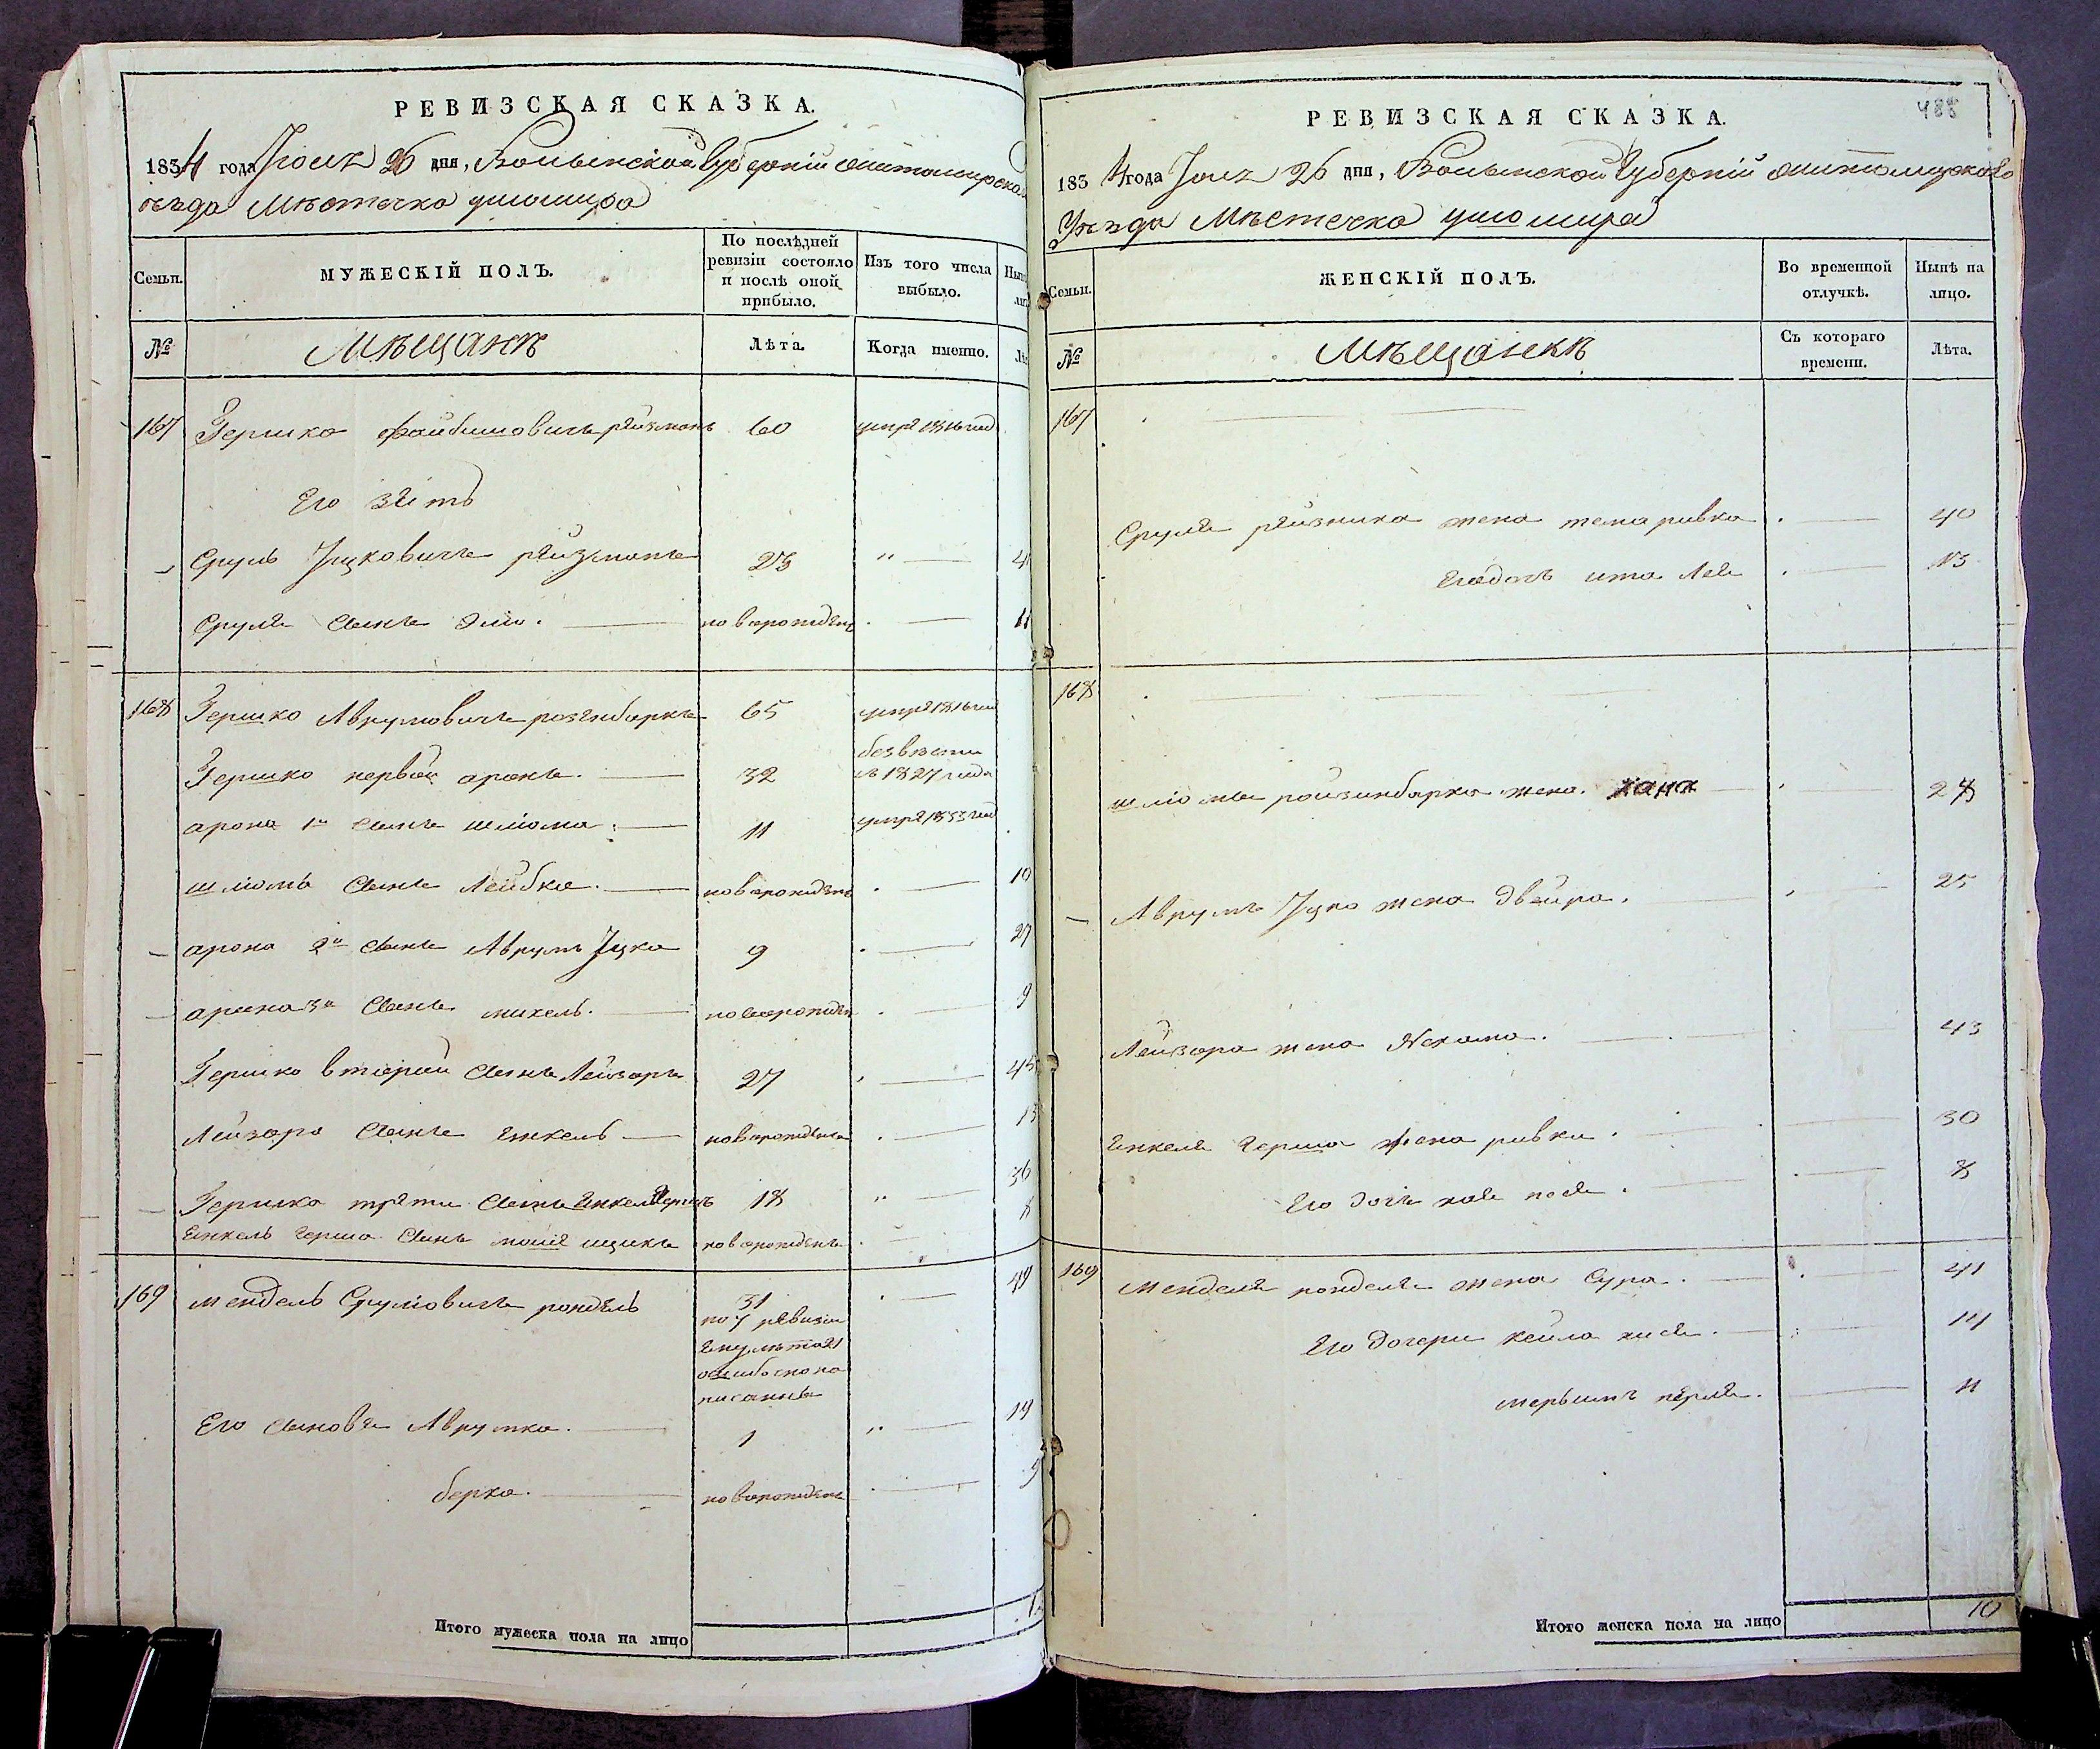 РЕВИЗСКАЯ СКАЗКА.
1834 года Іюля 26 дня, Волынской Губерніи Житомирска
уѣзда Мѣстечка ушомира
Семьи.
МУЖЕСКІЙ ПОЛЪ.
По послѣдней ревизіи состояло и послѣ оной прибыло.
Изъ того числа выбыло.
№
Мѣщанѣ
Лѣта.
Когда именно.
167 Гершко Файбишовичъ рейзманъ 60 умре 1816 год
Его зеть
Сруль Іцковичъ рейзманъ 23 " 4
Сруля Сынъ Эліо. новорожденъ 11
168 Гершко Аврумовичъ розенбаркъ 65 умре 1816 год
Гершко первой аронъ. 32 безвѣсти съ 1827 года
арона 1й Сынъ шліома. 11 умре 1833 год
шліома Сынъ Лейбка. новорожденъ 10
арона 2й Сынъ Аврумъ Іцка 9 27
арона 3й Сынъ михель. новорожден 9
Гершко вторій Сынъ Лейзоръ 27 45
Лейзора Сынъ Енкель новорожденъ 13
Гершко трети Сынъ Енкель Гершъ 18 " 36
Енкель Герша Сынъ мошя ицикъ новорожденъ 8
169 мендель Сруліовичъ рондель 31 49
по 7 ревизіи
Ему лѣта 21
ошибочно на
писаннъ
Его Сыновя Аврумка. 1 19
берко. новорожденъ 9
Итого мужеска пола на лицо
488
РЕВИЗСКАЯ СКАЗКА.
1834 года Іюля 26 дня, Волынской Губерній Житомирского
Уѣзда Мѣстечка ушомира
Семьи.
ЖЕНСКІЙ ПОЛЪ.
Во временной отлучкѣ.
Нынѣ на лицо.
№
Мѣщанкѣ
Съ котораго времени.
Лѣта.
167
Сруля рейзмина жена тема ривка 40
Его дочъ ита Лея 13
168
шліома ройзинбарка жена. хана 28
Аврумъ Іцко жена Двейра. 25
Лейзора жена Нехама. 43
Енкеля Герша жена ривка. 30
Его дочъ хая песя. 8
169 Менделя ронделя жена Сура. 41
Его дочери кейла хися. 14
мерьимъ перля. 11
Итого женска пола на лицо 10